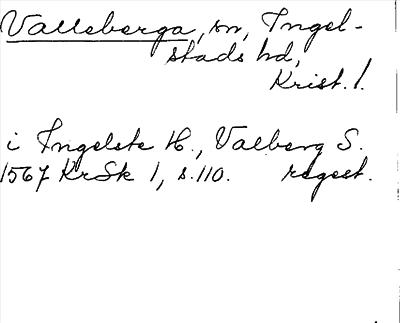 Valleberga, sn, Ingel-
stads hd,
Krist. l.
i Ingelste H., Valberg S.
1567 KrSk 1, s.110. regest.